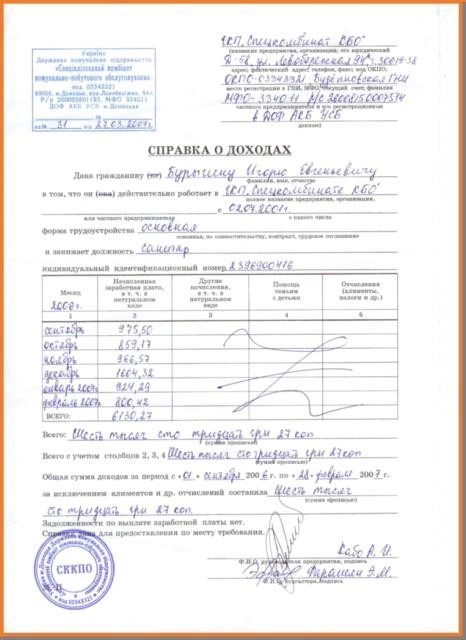 Україна
Державне комунальне підприємство
«Спеціалізований комбінат
комунально-побутового обслуговування»
код 0334332
м.Донецьк
ДОФ АКБ УСБ м.Донецька
№ 31 від 27.03.2007г.
ГКП „Спецкомбинат КБО"
(название предприятия, организации; его юридический
адрес; фактический адрес; телефон, факс; код ОКПО;
ОКПО-03343321 Буденновская ГНИ
место регистрации в ГНИ, МФО, текущий счет; фамилия
МФО-334011 Р/С
частного предпринимателя и его регистрационные
в ДОФ АКБ УСБ
данные)
СПРАВКА О ДОХОДАХ
Дана гражданину (ке) Бурыгину Игорю Евгеньевичу
фамилия, имя, отчество
в том, что он (она) действительно работает в ГКП „Спецкомбинате КБО"
полное название предприятия, организации,
с 02.07.2001г.
или частного предпринимателя с какого числа
форма трудоустройства основная
основная, по совместительству, контракт, трудовое соглашение
и занимает должность санитар
индивидуальный идентификационный номер 2396900416
Месяц 2006г. Начисленная заработная плато, в т. ч. в натуральном виде Другие начисления, в т. ч. в натуральном виде Помощь семьям с детьми Отчисления (алименты, налоги и др.)
1 2 3 4 5
сентябрь 975,50
октябрь 859,17
ноябрь 966,57
декабрь 1604,32
январь 2007г. 924,29
февраль 2007г. 800,42
ВСЕГО: 6130,27
Всего: Шесть тысяч сто тридцать грн 27 коп
(сумма прописью)
Всего с учетом столбцов 2, 3, 4 Шесть тысяч сто тридцать грн 27коп
(сумма прописью)
Общая сумма доходов за период с «01» сентября 2006 г. по «28» февраля 2007 г.
за исключением алиментов и др. отчислений составила Шесть тысяч
(сумма прописью)
сто тридцать грн 27 коп.
Задолженности по выплате заработной платы нет.
Справка дана для предоставления по месту требования.
Кабо А. И.
Ф.И.О. руководителя предприятия, подпись
Э.М.
Ф.И.О. бухгалтера, подпись
СККПО